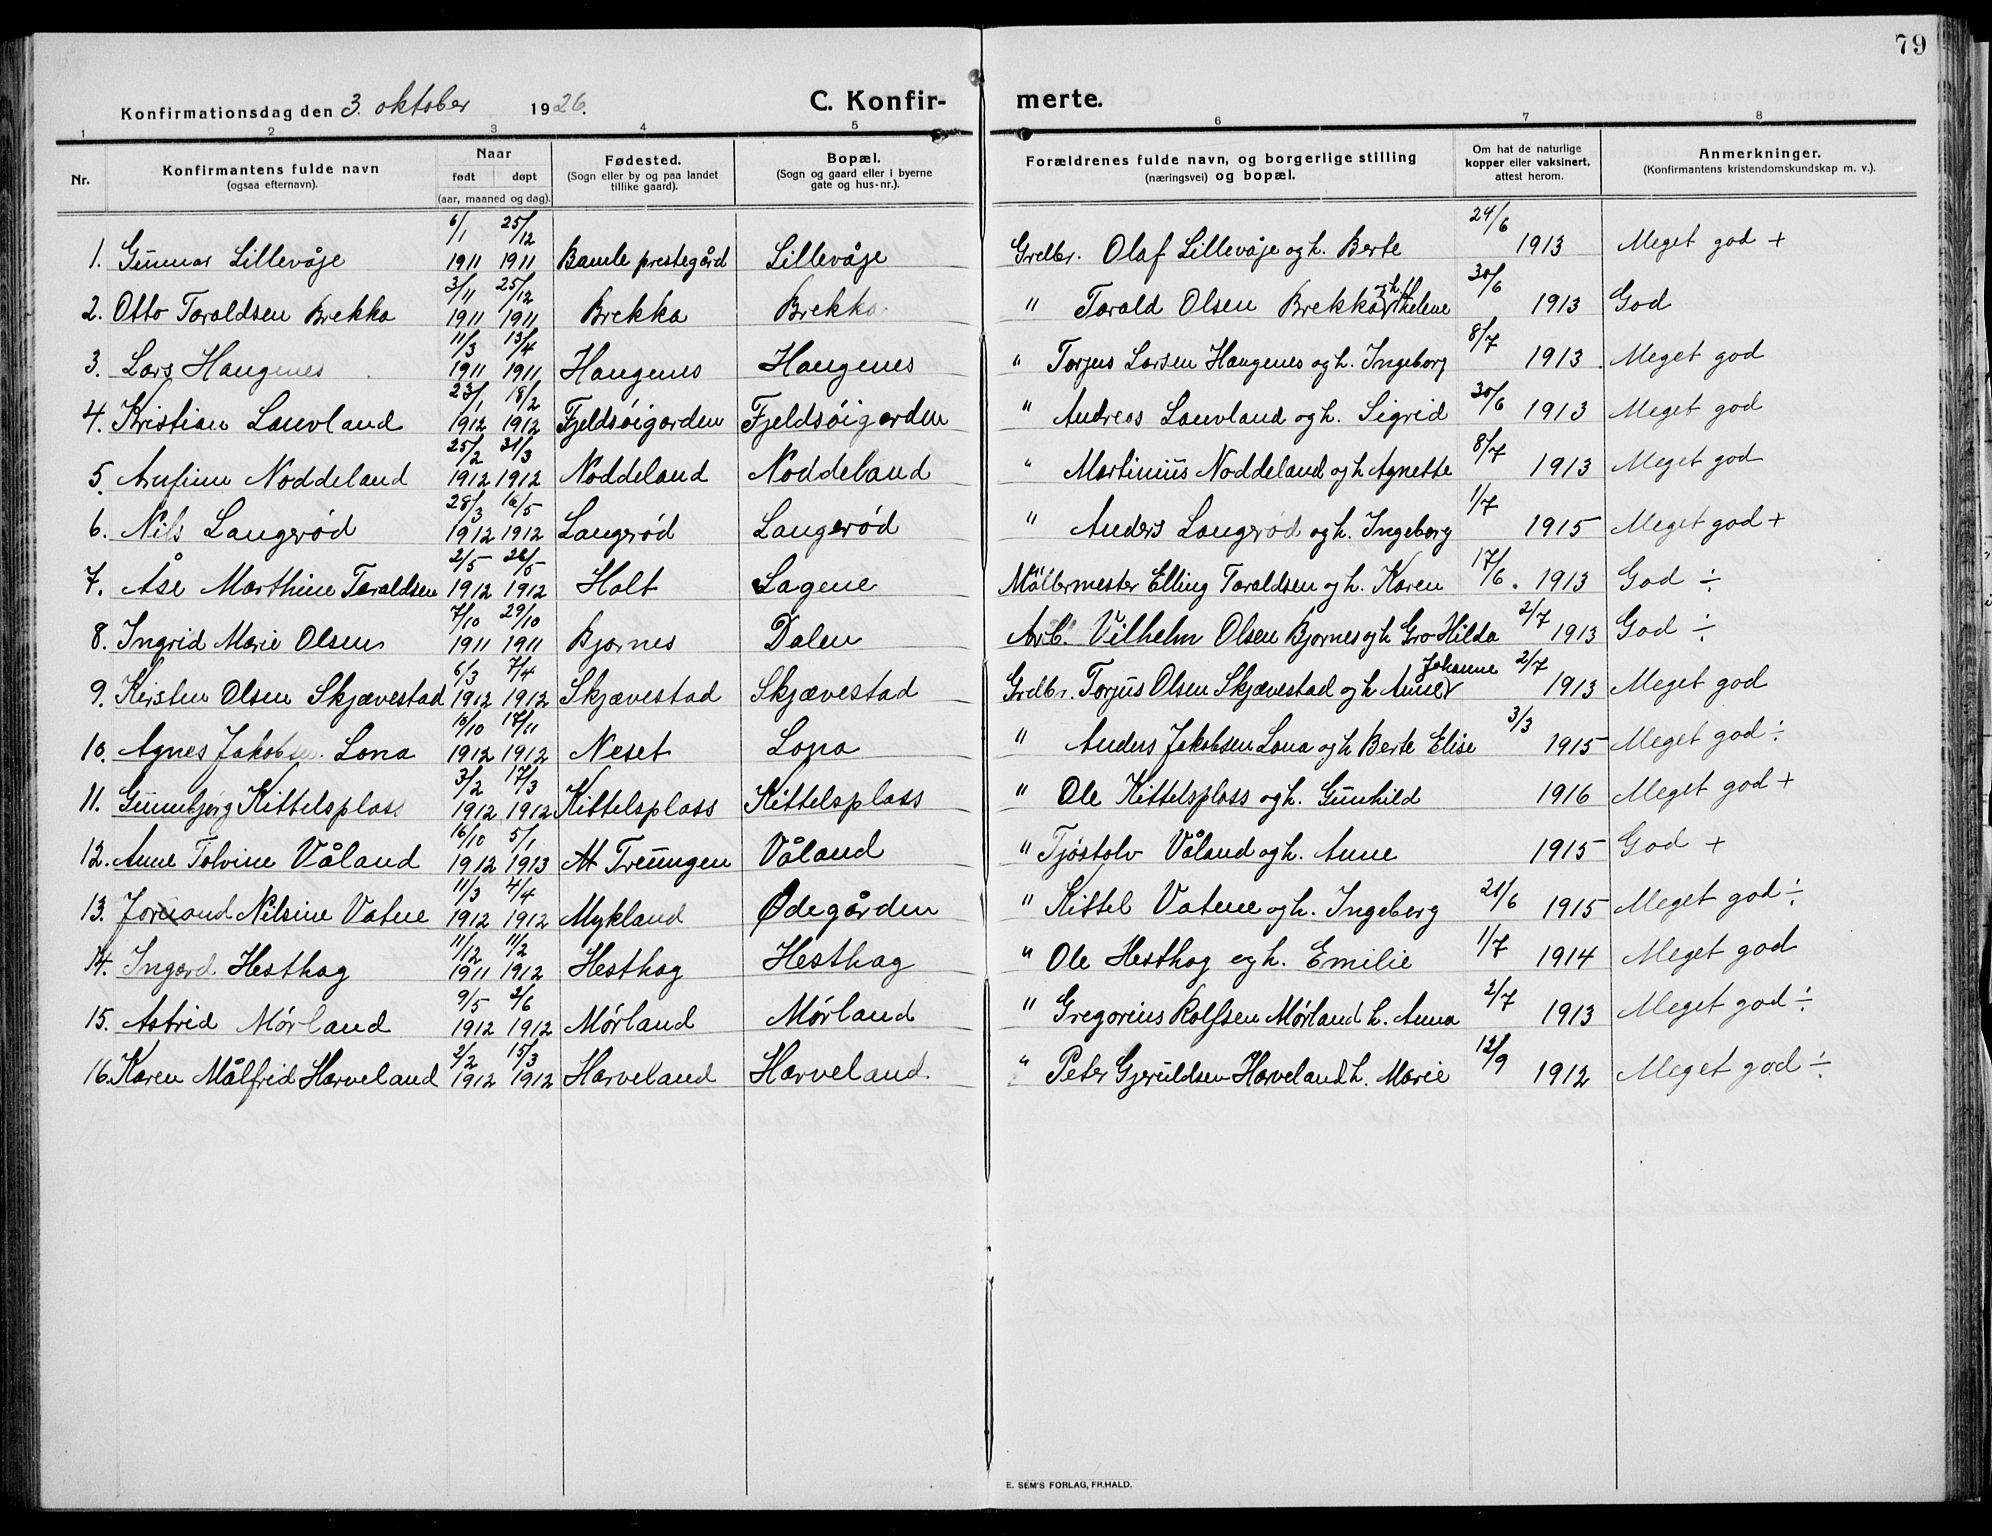 79
Konfirmationsdag den 3. oktober 1926. C. Konfir- merte.
1 2 3 4 5 6 7 8
Nr. Konfirmantens fulde navn (ogsaa efternavn). Naar født døpt (aar, maaned og dag). Fødested. (Sogn eller by og paa landet tillike gaard). Bopæl. (Sogn og gaard eller i byerne gate og hus-nr.). Forældrenes fulde navn, og borgerlige stilling (næringsvei) og bopæl. Om hat de naturlige kopper eller vaksinert, attest herom. Anmerkninger. (Konfirmantens kristendomskundskap m. v.).
1. Gunnar Lillevåje 6/1 1911 25/12 1911 Bamle prestegård Lillevåje Grdbr. Olaf Lillevåje og h. Berte 24/6 1913 Meget god +
2. Otto Taraldsen Brekka 3/11 1911 25/12 1911 Brekka Brekka " Tarald Olsen Brekka og h. Thelene 30/6 1913 God
3. Lars Haugenes 11/3 1911 13/4 1911 Haugenes Haugenes " Torjus Larsen Haugenes og h. Ingeborg 8/7 1913 Meget god
4. Kristian Lauvland 23/1 1912 18/2 1912 Fjeldsøigarden Fjeldsøigarden " Andreas Lauvland og h. Sigrid 30/6 1913 Meget god
5. Arnfinn Noddeland 25/2 1912 31/3 1912 Noddeland Noddeland " Martinius Noddeland og h Agnette 8/7 1913 Meget god
6. Nils Langerød 28/3 1912 16/5 1912 Langerød Langerød " Anders Langerød og h. Ingeborg 1/7 1915 Meget god +
7. Åse Marthine Taraldsen 2/5 1912 26/5 1912 Holt Lagene Møllermester Elling Taraldsen og h. Karen 17/6 1913 God ÷
8. Ingrid Marie Olsen 7/10 1911 29/10 1911 Bjornes Dalen Arb. Vilhelm Olsen Bjornes og h Gro Hilda 2/7 1913 God ÷
9. Kirsten Olsen Skjævestad 6/3 1912 7/4 1912 Skjævestad Skjævestad Grdbr. Torjus Olsen Skjævestad og h Anne Johanne 2/7 1913 Meget god
10. Agnes Jakobsen Lona 16/10 1912 17/11 1912 Neset Lona " Anders Jakobsen Lona og h Berte Elise 3/3 1915 Meget god ÷
11. Gunnbjørg Kittelsplass 3/2 1912 17/3 1912 Kittelsplass Kittelsplass " Ole Kittelsplass og h. Gunhild 1916 Meget god +
12. Anne Tolvine Våland 16/10 1912 5/1 1913 At Treungen Våland " Tjøstolv Våland og h. Anne 1915 God +
13. Jorand Nilsine Vatne 11/3 1912 4/4 1912 Mykland Ødegården " Kittel Vatne og h. Ingeberg 21/6 1915 Meget god ÷
14. Ingerd Hesthag 11/12 1911 11/2 1912 Hesthag Hesthag " Ole Hesthag og h. Emilie 1/7 1914 Meget god
15. Astrid Mørland 9/5 1912 2/6 1912 Mørland Mørland " Gregorius Rolfsen Mørland h. Anna 2/7 1913 Meget god ÷
16. Karen Målfrid Harveland 2/2 1912 15/3 1912 Harveland Harveland. " Peter Gjeruldsen Harveland h. Marie 12/9 1912 Meget god ÷
E. SEM'S FORLAG, FR.HALD.